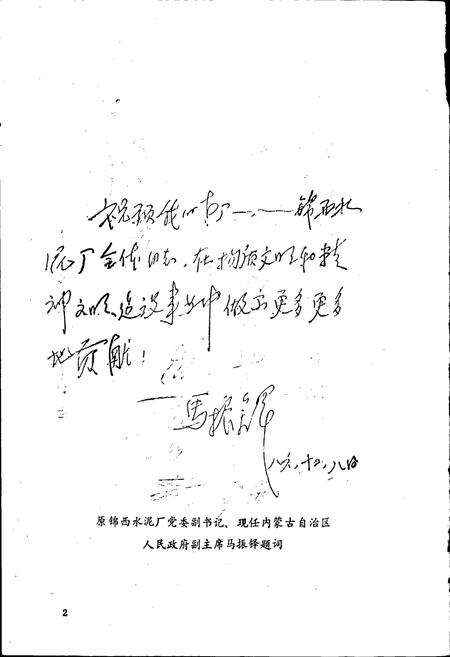 祝愿我的老厂——锦西水
泥厂全体同志，在物质文明和精
神文明建设事业中做出更多更多
地贡献！
马振铎
八六、十二、八日
原锦西水泥厂党委副书记、现任内蒙古自治区
人民政府副主席马振铎题词
2